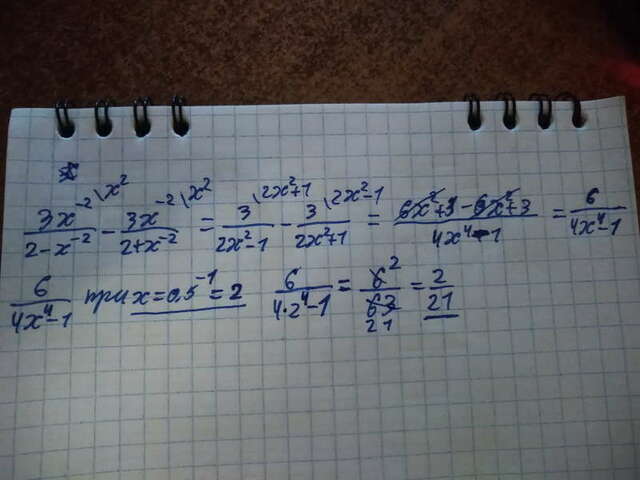 3x⁻² \x² / 2-x⁻² - 3x⁻² \x² / 2+x⁻² = 3 \2x²+1 / 2x²-1 - 3 \2x²-1 / 2x²+1 = 6x²+3-6x²+3 / 4x⁴-1 = 6 / 4x⁴-1
6 / 4x⁴-1 при x=0,5⁻¹=2 6 / 4·2⁴-1 = 6 2 / 63 21 = 2 / 21